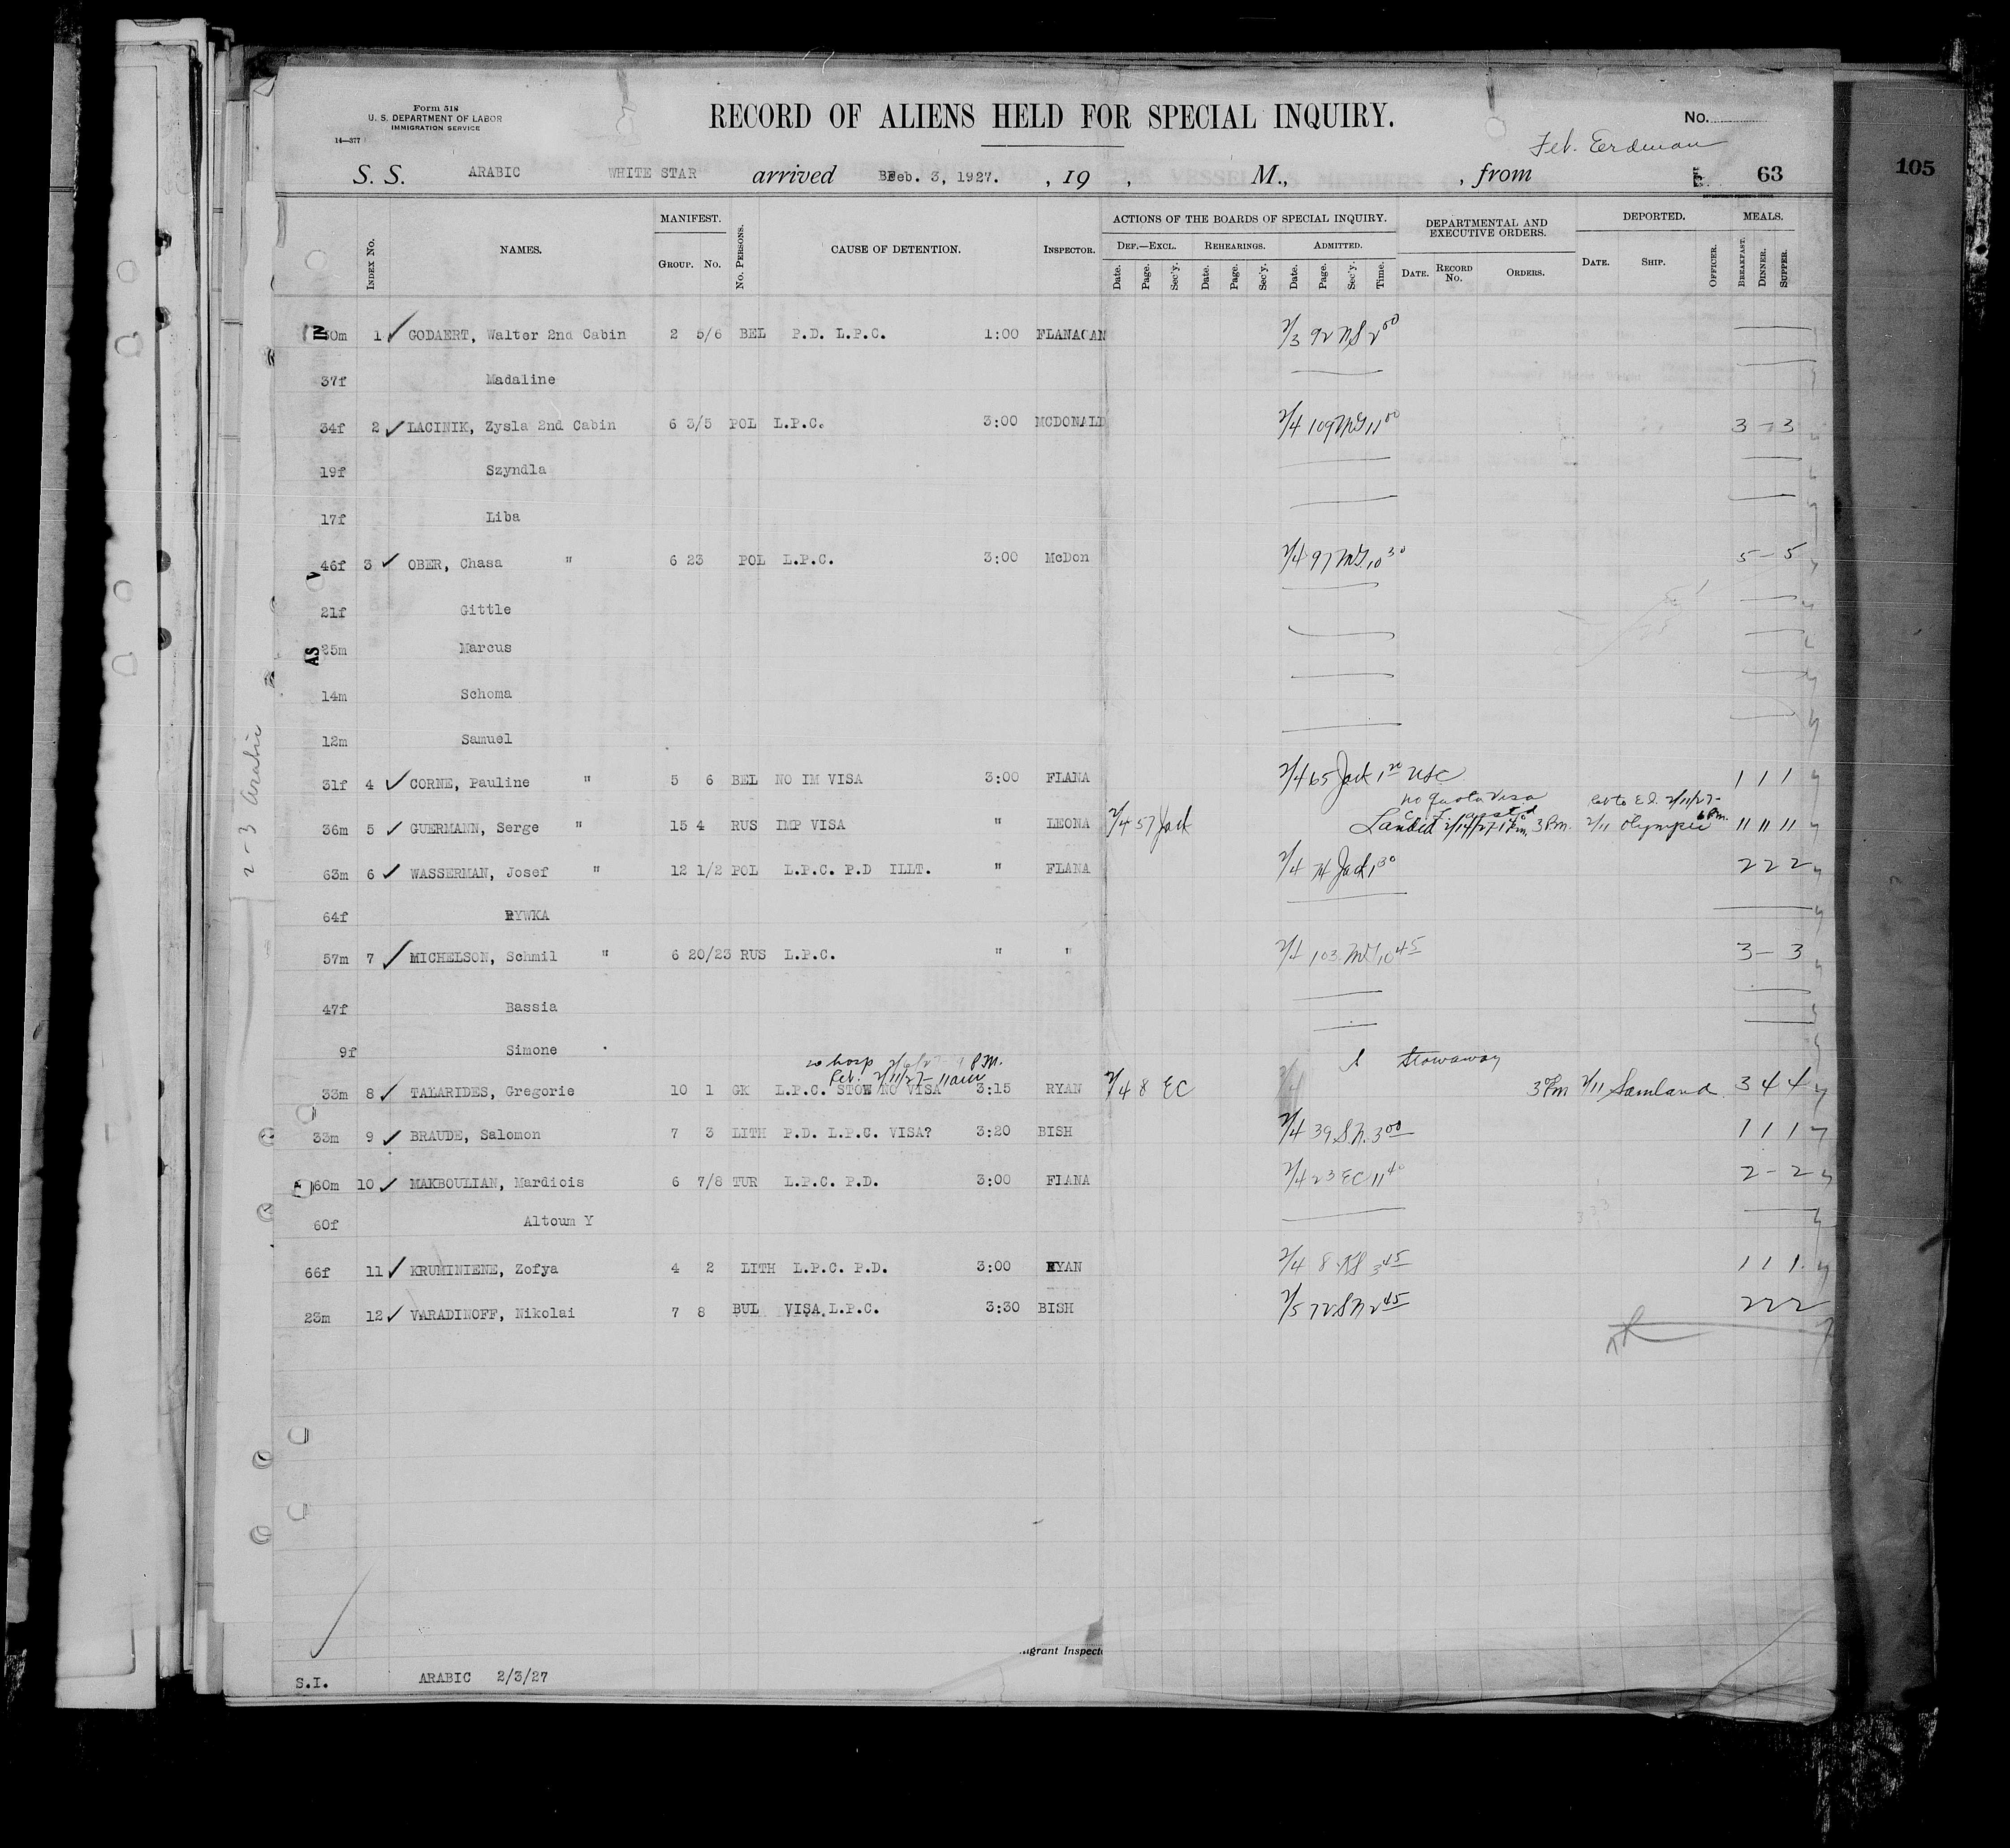 Form 518
U. S. DEPARTMENT OF LABOR
IMMIGRATION SERVICE
14—377
RECORD OF ALIENS HELD FOR SPECIAL INQUIRY.
No.
Feb. Eerdman
S. S. ARABIC WHITE STAR arrived Feb. 3, 1927. , 19 , M., , from 63
105
NAMES.
MANIFEST.
CAUSE OF DETENTION.
ACTIONS OF THE BOARDS OF SPECIAL INQUIRY.
DEPARTMENTAL AND EXECUTIVE ORDERS.
DEPORTED.
MEALS.
INDEX No.
GROUP. No.
No. PERSONS.
INSPECTOR.
DEF.—EXCL. REHEARINGS. ADMITTED.
Date. Page. Sec'y. Date. Page. Sec'y. Date. Page. Sec'y. Time.
DATE. RECORD No. ORDERS.
DATE. SHIP. OFFICER.
BREAKFAST. DINNER. SUPPER.
IN 0m 1 GODAERT, Walter 2nd Cabin 2 5/6 BEL P.D. L.P.C. 1:00 FLANAGAN 2/3 92 NS 2 00
37f Madaline
34f 2 LACINIK, Zysla 2nd Cabin 6 3/5 POL L.P.C. 3:00 MCDONALD 2/4 109 11 00 3 - 3
19f Szyndla
17f Liba
46f 3 OBER, Chasa " 6 23 POL L.P.C. 3:00 McDon 2/4 97 10 30 5 - 5
21f Gittle
AS 25m Marcus
14m Schoma
12m Samuel
31f 4 CORNE, Pauline " 5 6 BEL NO IM VISA 3:00 FLANA 2/4 65 Jack 1 20 USC 1 1 1
no quota visa
36m 5 GUERMANN, Serge " 15 4 RUS IMP VISA " LEONA 2/4 57 Jack Landed 2/14/27 1 Pm. 3 Pm. 2/11 Olympic 11 11 11
63m 6 WASSERMAN, Josef " 12 1/2 POL L.P.C. P.D ILLT. " FLANA 2/4 74 Jack 1 30 2 2 2
64f RYWKA
57m 7 MICHELSON, Schmil " 6 20/23 RUS L.P.C. " " 2/4 103 10 45 3 - 3
47f Bassia
9f Simone
to hosp P.M. Stowaway
2/11/27 11am
33m 8 TALARIDES, Gregorie 10 1 GK L.P.C. STOW NO VISA 3:15 RYAN 2/4 8 EC 3 Pm 2/11 Samland 3 4 4
33m 9 BRAUDE, Salomon 7 3 LITH P.D. L.P.C. VISA? 3:20 BISH 2/4 39 S.N. 3 00 1 1 1
60m 10 MAKBOULIAN, Mardiois 6 7/8 TUR L.P.C. P.D. 3:00 FLANA 2/4 23 EC 11 40 2 - 2
60f Altoum Y
66f 11 KRUMINIENE, Zofya 4 2 LITH L.P.C. P.D. 3:00 RYAN 2/4 8 3 45 1 1 1
23m 12 VARADINOFF, Nikolai 7 8 BUL VISA L.P.C. 3:30 BISH 2/5 72 SN 2 45 2 2 2
2-3 Arabic
S.I. ARABIC 2/3/27